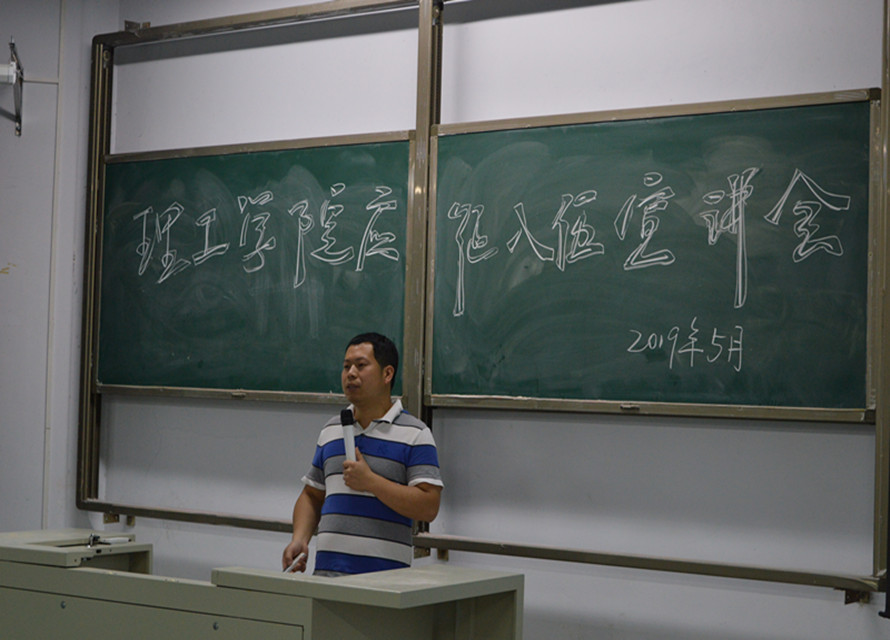 理工学院应征入伍宣讲会
2019年5月